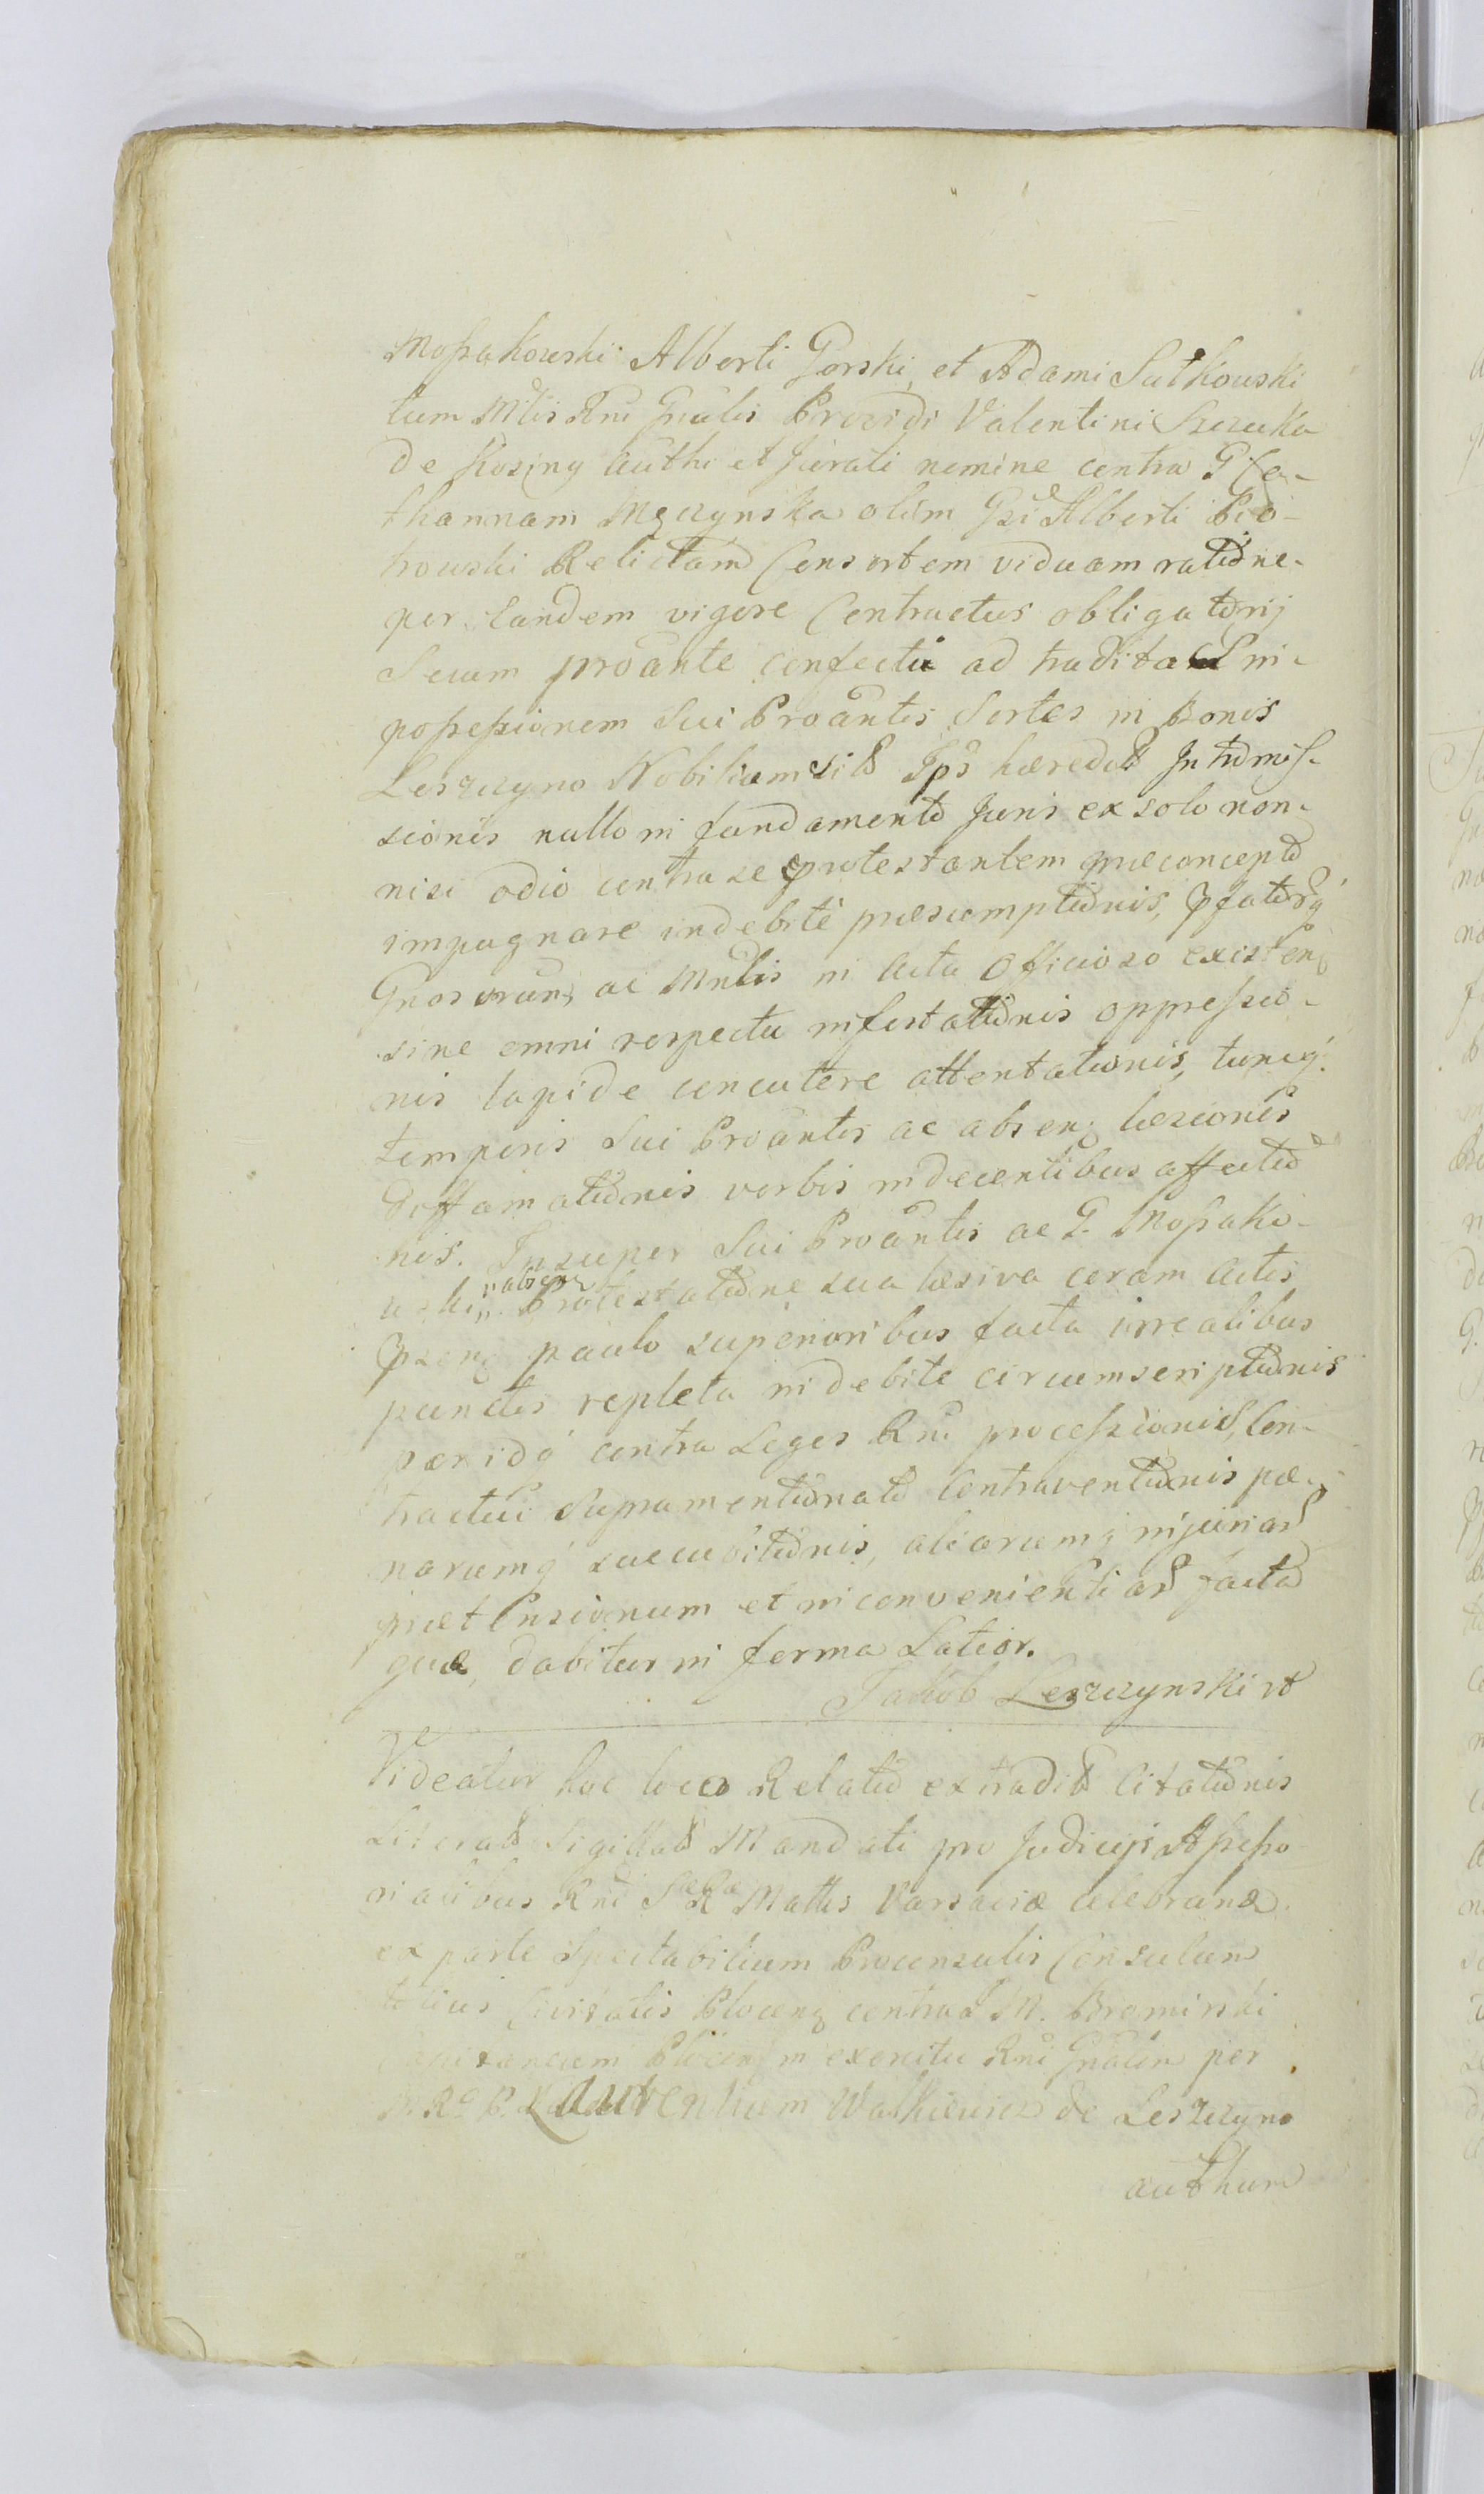 Mossakowski Alberti Gorski, et Adami Sutkowski
tum Mtlis Rni Gnalis Providi Valentini Szczuka
de Kosiny authi et Jurati nemine contra G Ca-
thannam Męczynska olim Gsi Alberti Pio-
trowski Relictam Consortem viduam ratione
per eandem vigore Contractus obligatorij
Secum proante confecti ad tradita in
possessionem Sui Proantis Sortes in Bonis
Leszczyno Nobilium Ips haered Intromis-
sionis nullo in fundamento Juris ex solo non-
nisi odio contra se protestantem praeconcepto
impugnare indebitè praesumptionis, Pfatorq
Gnosorum ac Mnlis in acta Officioso existen
sine omni respectu infestationis oppressio-
nis lapide concutere attentationis, tuncq
temporis Sui Proantis ac absenq laesionis
Diffamationis verbis indecentibus affectio
nis. Insuper Sui Proantis ac G. Mossako-
wski "absenq" Protestatione sua laesiva coram actis
Psenq paulo superioribus facta irrealibus
punctis repleta indebite circumscriptionis
perido contra Leges Rni processionis, Con-
tractui Supramentionato Contraventionis pae-
narumq succubitionis, aliarumq injuriar
praetensionum et inconvenientiar facta
quae, dabitur in forma Latior.
Jakob Leszczynski
Videatur hoc loco Relatio extradit Citationis
Literat Sigillat Mandati pro Judicijs Assesso
rialibus Rni S R Mattis Varsaviae celebran
ex parte Spectabilium Proconsulis Consulum
totius Civitatis Plocenq contra M. Bromirski
Plocen in exercitu Rni Gnalem per
Laurentium Walkiewicz de Leszczyno
authum